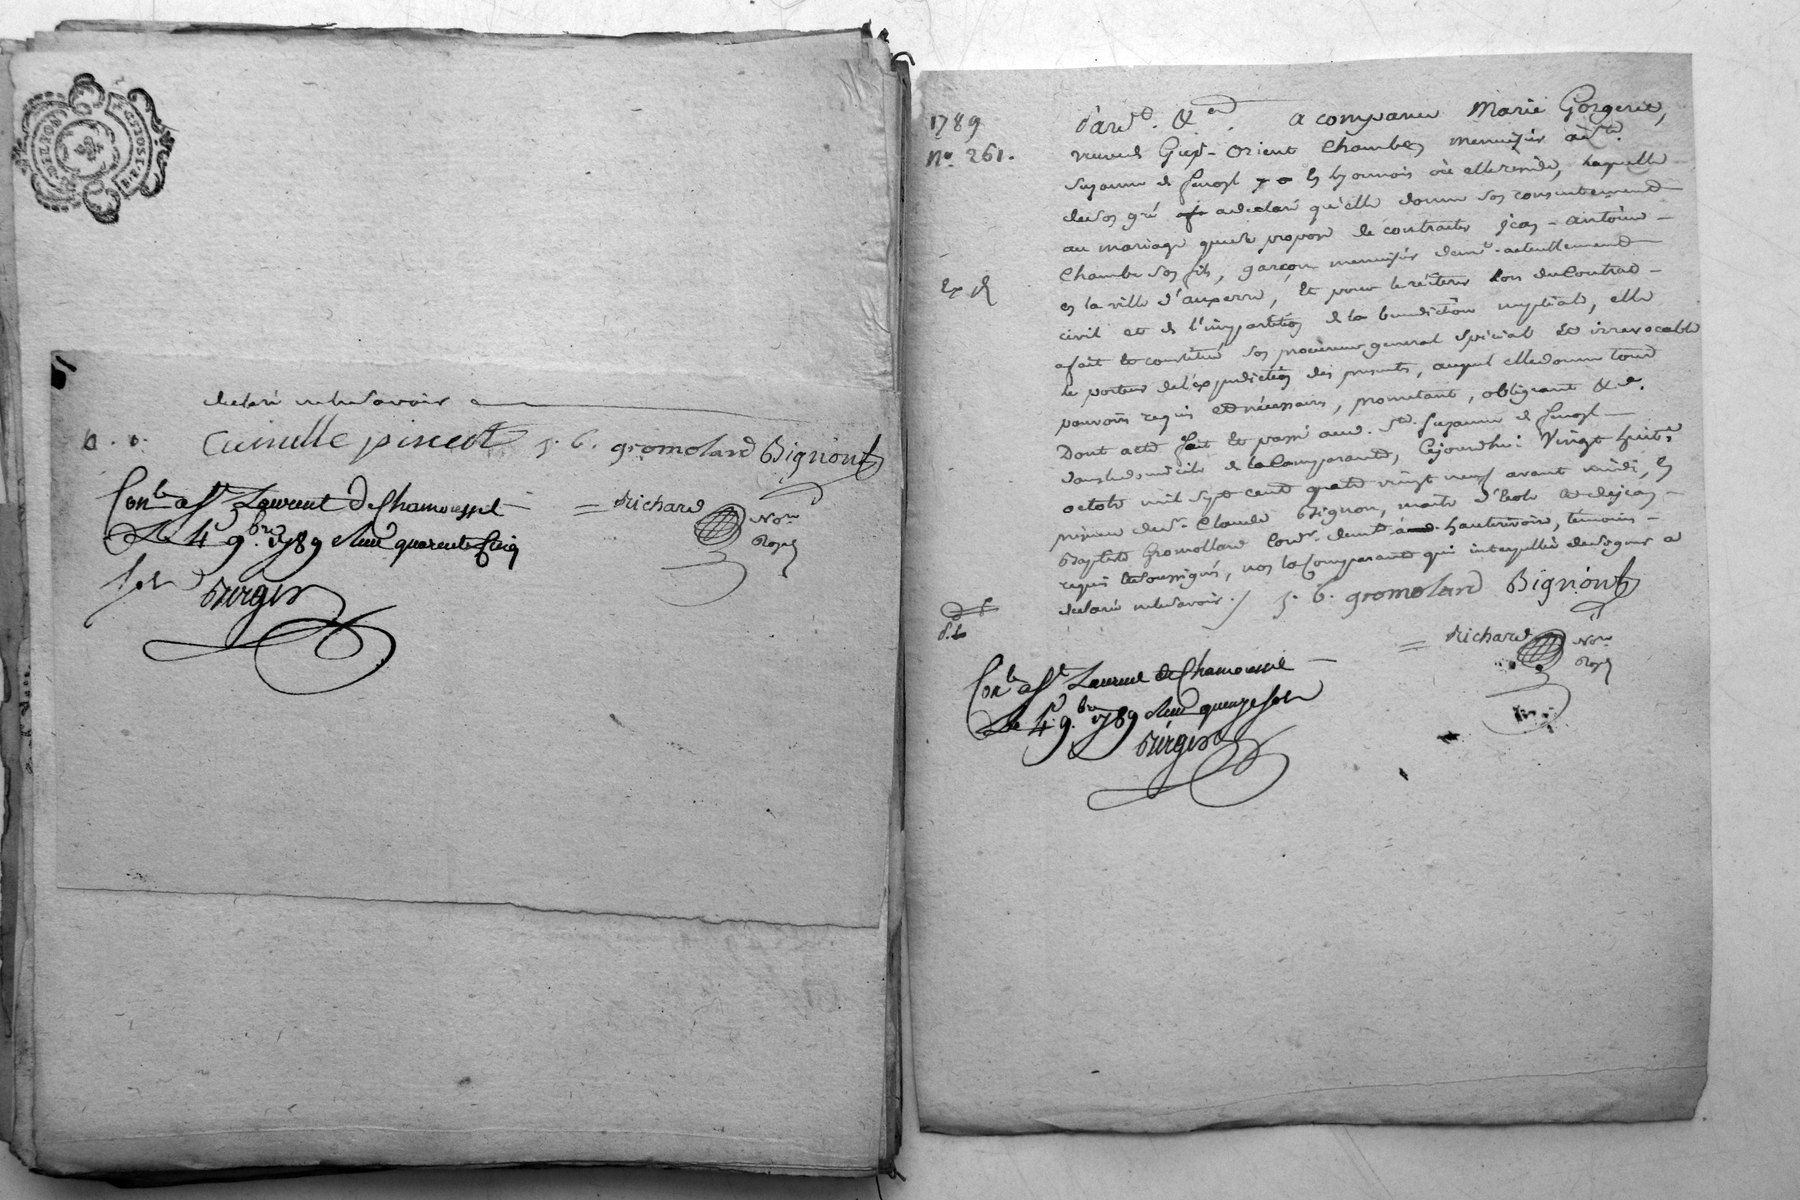 declaré ne le savoir
Camille pinedt J. B. gromolard Bignon
Con.le a St Laurent De Chamousset = Richard Not.re
Le 4e 9.bre 1789 Reçu quarente Cinq Royal
sols Birger
1789 Pard.t &a. A comparu Marie Gorgeret,
No. 261. veuve de Gsp. - Orient Chambe, menuisier à Ste.
Suzanne de en lyonnois où elle reside, laquelle
de son gré a declaré qu'elle donne son consentement
au mariage que se propose de contracter Jean - antoine -
Chambe son fils, garçon menuisier dem.t actuellement
Exp.é en la ville d'auxerre, Et pour le réiterer lors du Contrat -
civil et de l'impartition de la benediction nuptiale, elle
a fait et constitué son procureur general special et irrevocable
le porteur de l'expedition des presentes, auquel elle donne tout
pouvoir requis et nécessaire, promettant, obligeant &a.
Dont acte fait et passé aud. Ste. Suzanne de
dans le domicile de la Comparante, Cejourd'hui Vingt huit
octobre mil sept cent quatre vingt neuf avant midi, en
presence de sr. Claude Bignon, maitre d'ecole et de jean -
Baptiste Gromollard Cord.r dem.t à hauterivoire, temoins -
requis et soussignés, non la Comparante qui interpellée de signer a
declaré ne le savoir ./. J. B. gromolard Bignon
= Richard Not.re
Royal
Con.le a St Laurent de Chamousset
Le 4e 9.bre 1789 Reçu quinze sols
Birger